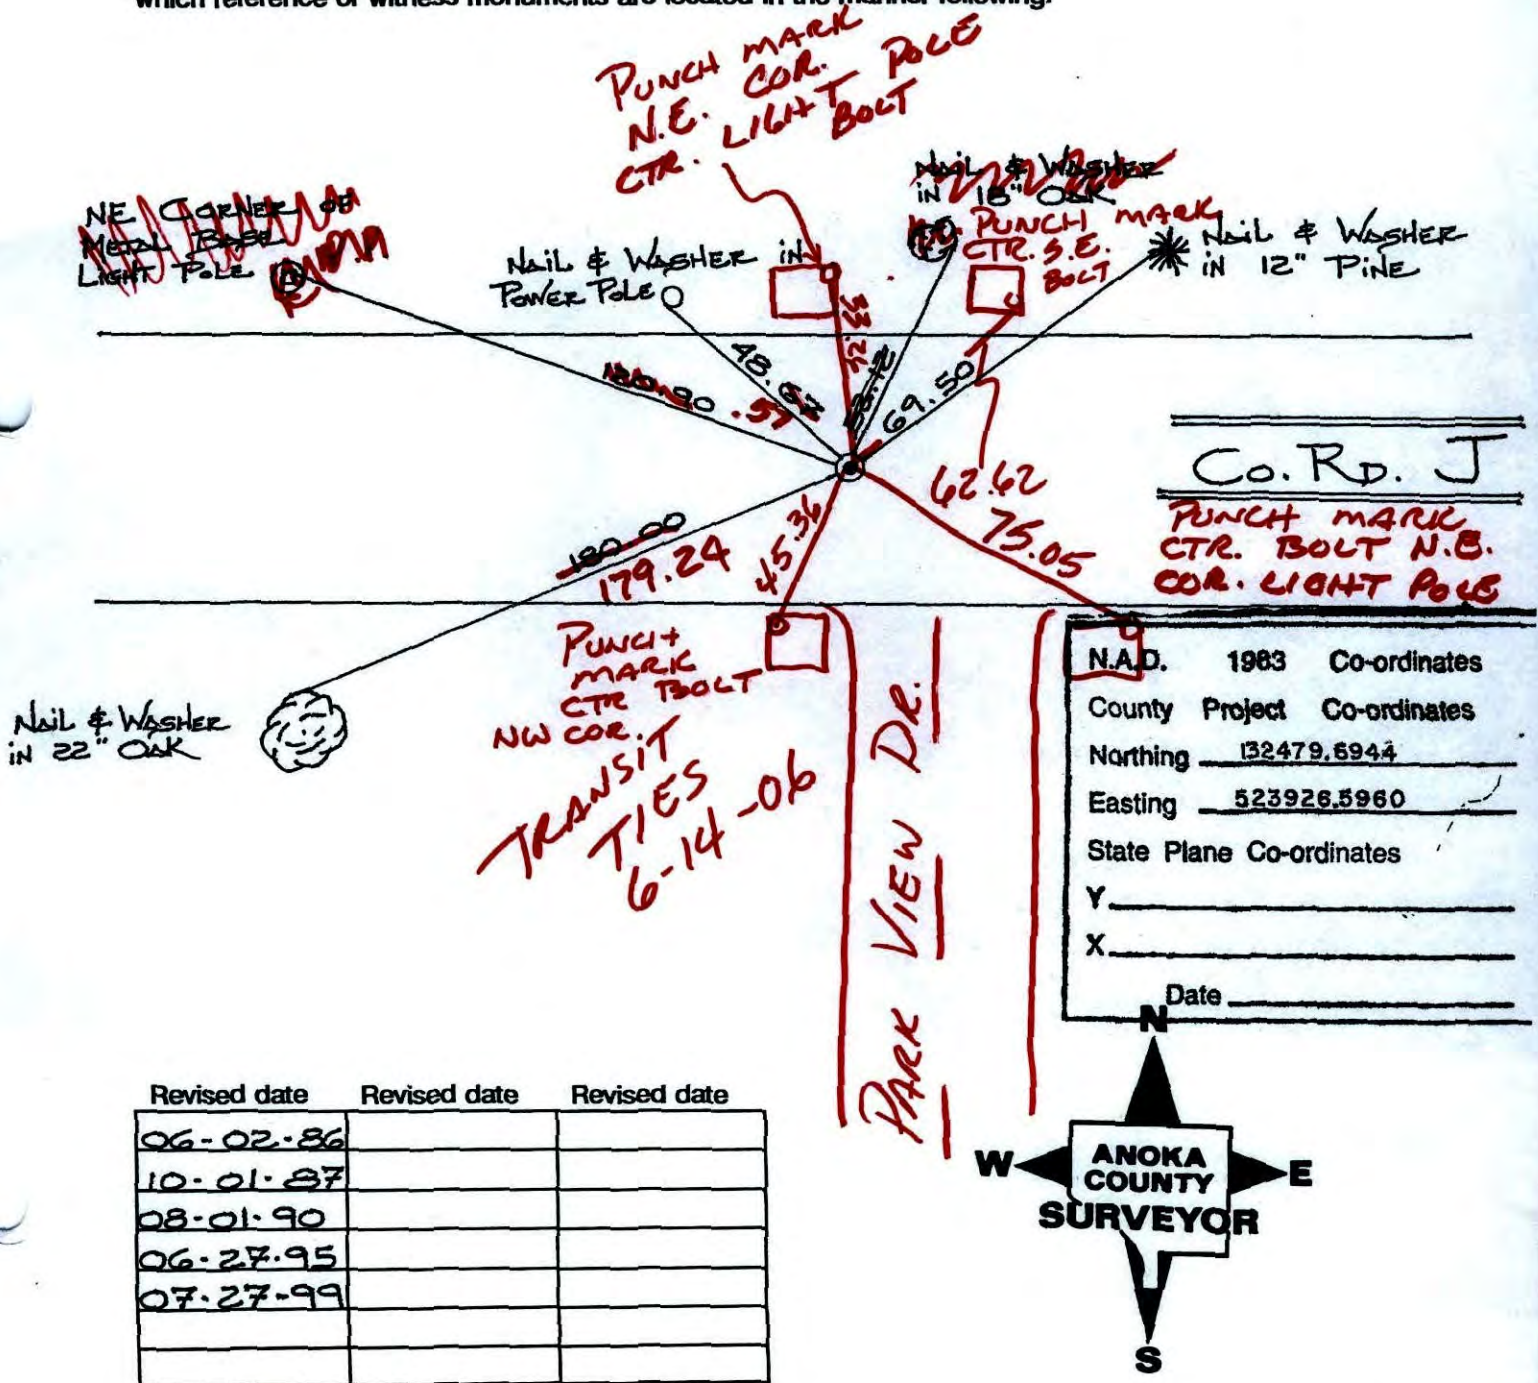 which reference or witness monuments are located in the manner following:
PUNCH MARK
N.E. COR.
CTR. LIGHT POLE
BOLT
NE CORNER OF
METAL BASE
LIGHT POLE
NAIL & WASHER in
POWER POLE
NAIL & WASHER
in 18" OAK
PUNCH MARK
CTR. S.E.
BOLT
NAIL & WASHER
in 12" PINE
120.90
48.67
.57
69.50
62.62
75.05
180.00
179.24
45.36
CO. RD. J
PUNCH MARK
CTR. BOLT N.E.
COR. LIGHT POLE
PUNCH
MARK
CTR BOLT
NW COR.
TRANSIT
TIES
6-14-06
NAIL & WASHER
in 22" OAK
PARK VIEW DR.
N.A.D. 1983 Co-ordinates
County Project Co-ordinates
Northing 132479.6944
Easting 523926.5960
State Plane Co-ordinates
Y
X
Date
Revised date Revised date Revised date
06-02-86
10-01-87
08-01-90
06-27-95
07-27-99
N
W
ANOKA
COUNTY
SURVEYOR
E
S